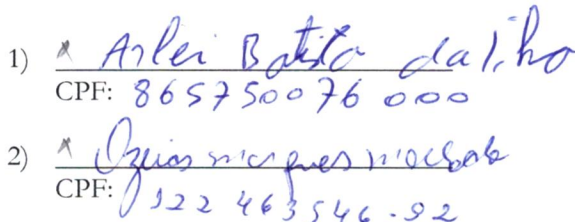 1) x Arlei Batista da Silva
CPF: 865750076 000
2) x Ozeias marques machado
CPF: 122 463546-92